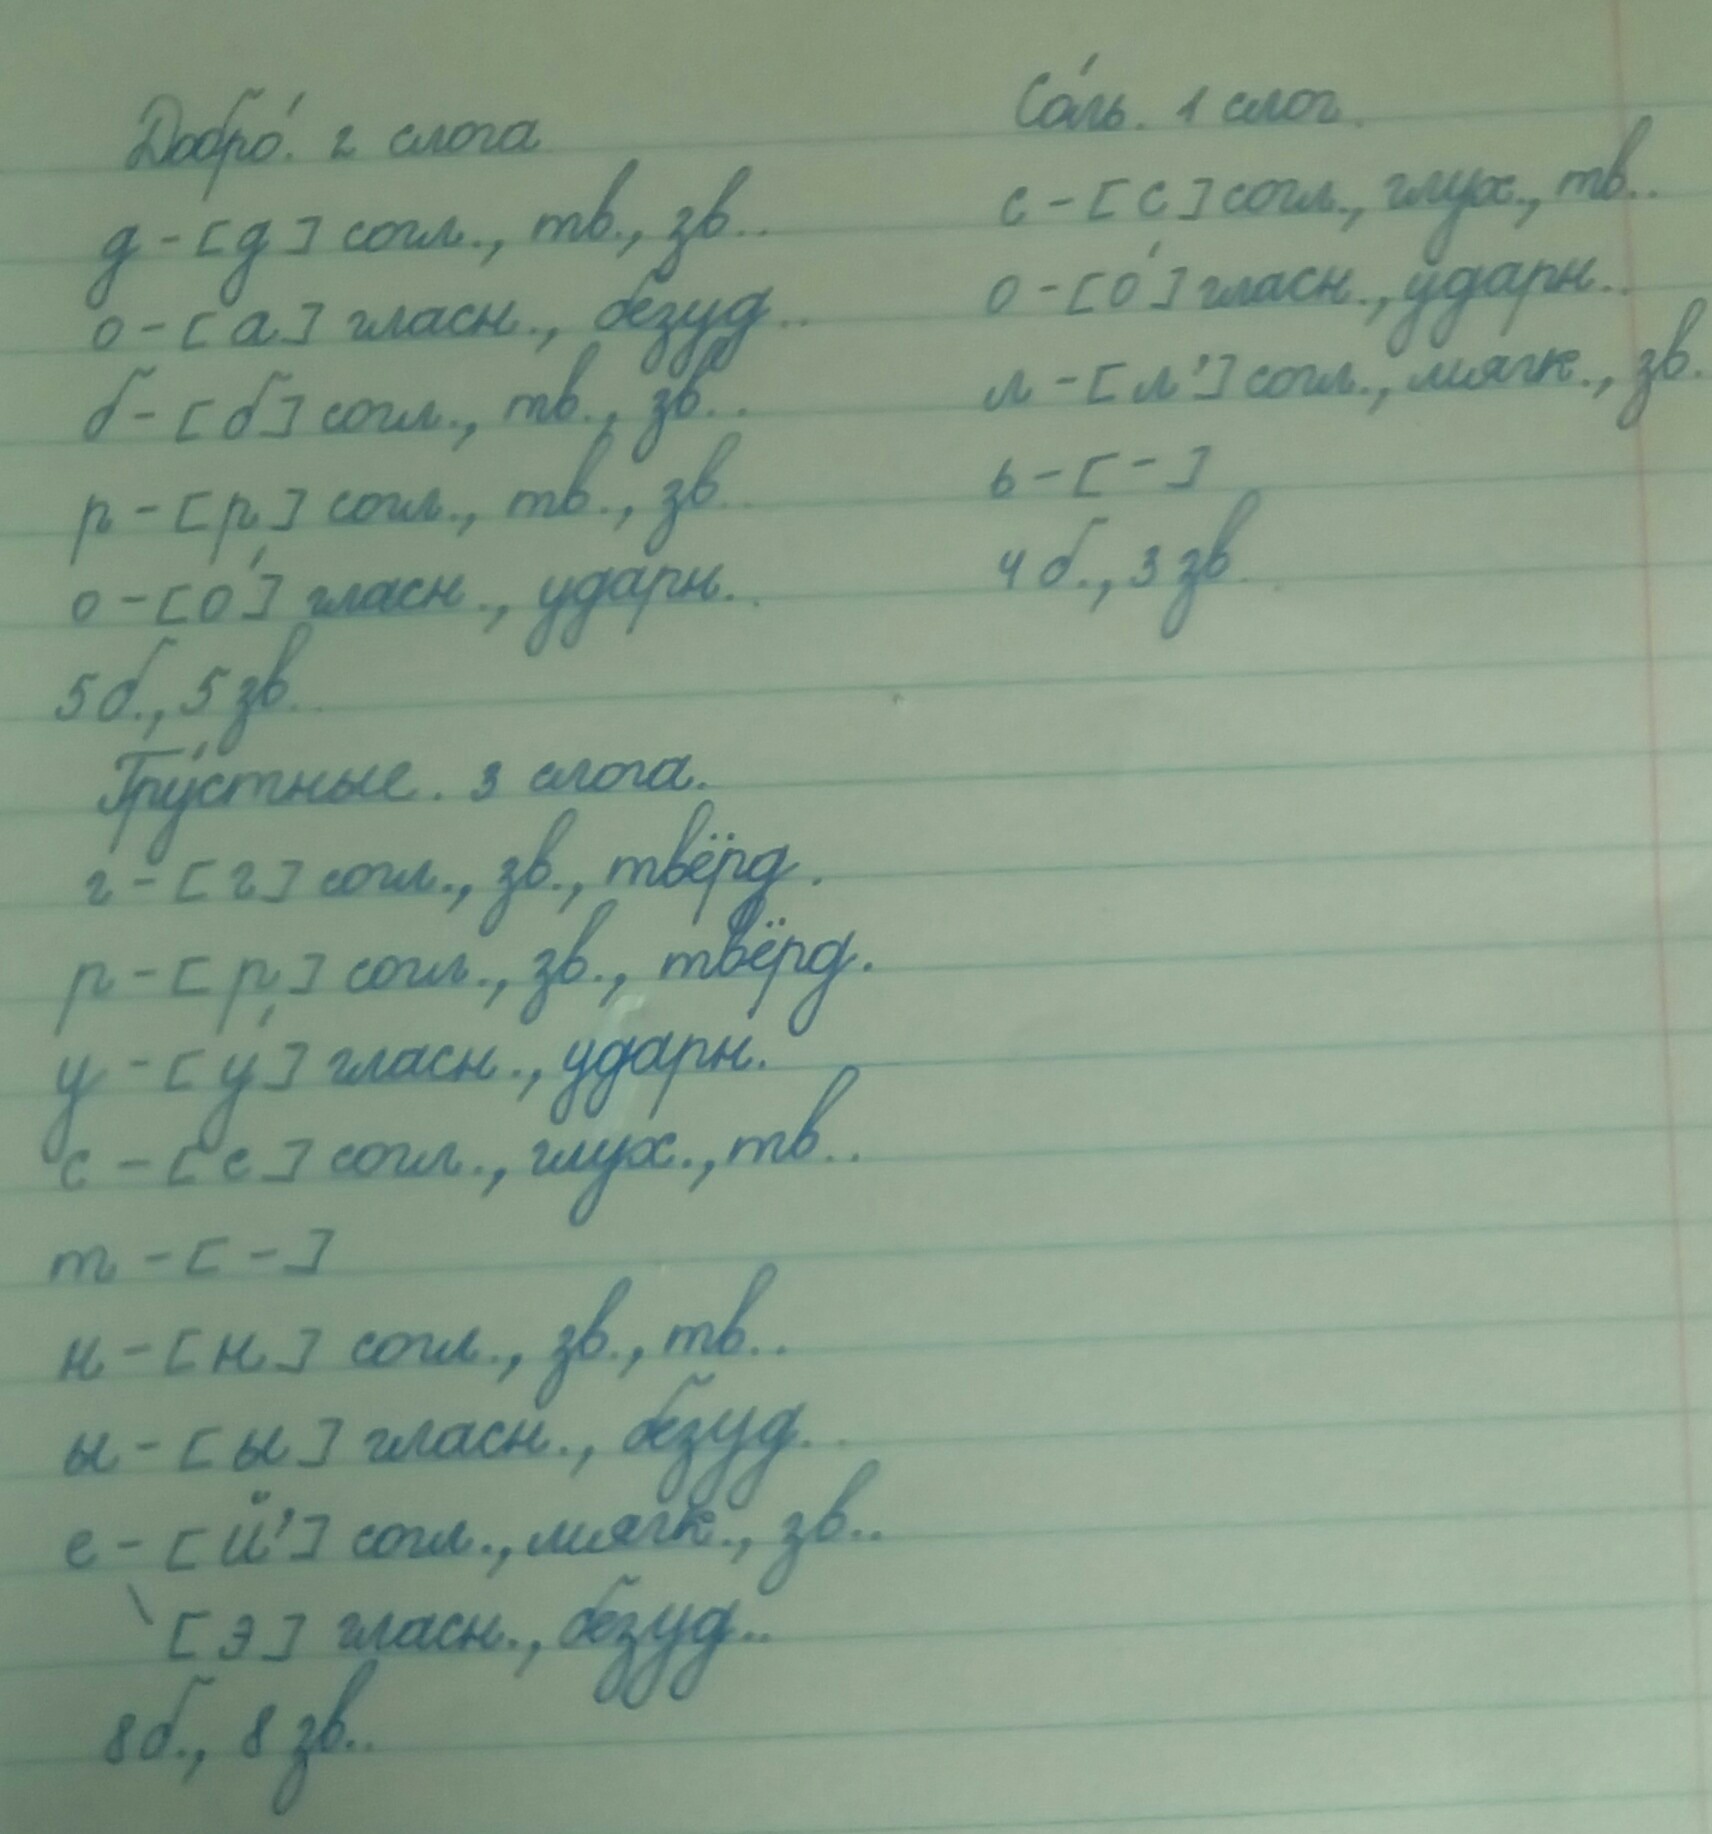 Добро́. 2 слога
д - [д] согл., тв., зв..
о - [а] гласн., безуд..
б - [б] согл., тв., зв..
р - [р] согл., тв., зв..
о - [о́] гласн., ударн..
5 б., 5 зв..
Гру́стные. 3 слога.
г - [г] согл., зв., твёрд.
р - [р] согл., зв., твёрд.
у - [у́] гласн., ударн.
с - [с] согл., глух., тв..
т - [-]
н - [н] согл., зв., тв..
ы - [ы] гласн., безуд..
е - [й'] согл., мягк., зв..
\ [э] гласн., безуд..
8 б., 8 зв..
Со́ль. 1 слог.
с - [с] согл., глух., тв..
о - [о́] гласн., ударн..
л - [л'] согл., мягк., зв.
ь - [-]
4 б., 3 зв.